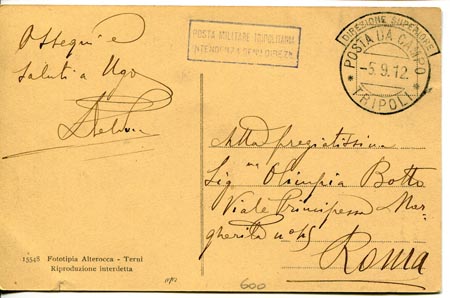 Ossequi e
saluti a Ugo
POSTA MILITARE TRIPOLITANIA
INTENDENZA
DIREZIONE SUPERIORE
* POSTA DA CAMPO *
-5.9.12.
TRIPOLI
Alla pregiatissima
Sig.na Olimpia Botto
Viale Principessa Mar-
gherita n°
Roma
15548 Fototipia Alterocca - Terni
Riproduzione interdetta
600